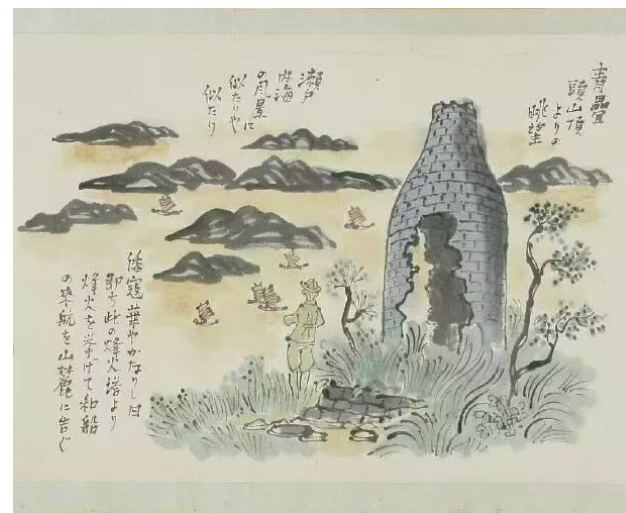 青晶宜
頭山頂
よりの
眺望
瀬戸
内海
の風景に
似たりや
似たり
倭寇華やかなりし日
即ち此の烽火塔より
烽火を挙げて和船
の来航を山麓に告ぐ